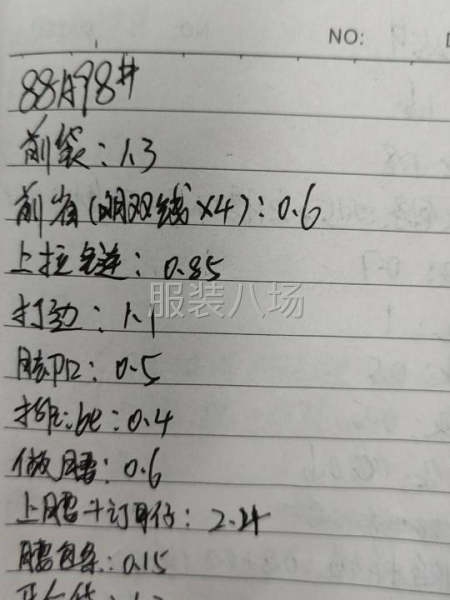 NO:
88A98#
前袋：1.3
前省(明双线×4)：0.6
上拉链：0.85
打边：1.1
服装八场
：0.5
：0.4
做腰：0.6
上腰+订耳仔：2.24
腰包条：0.15